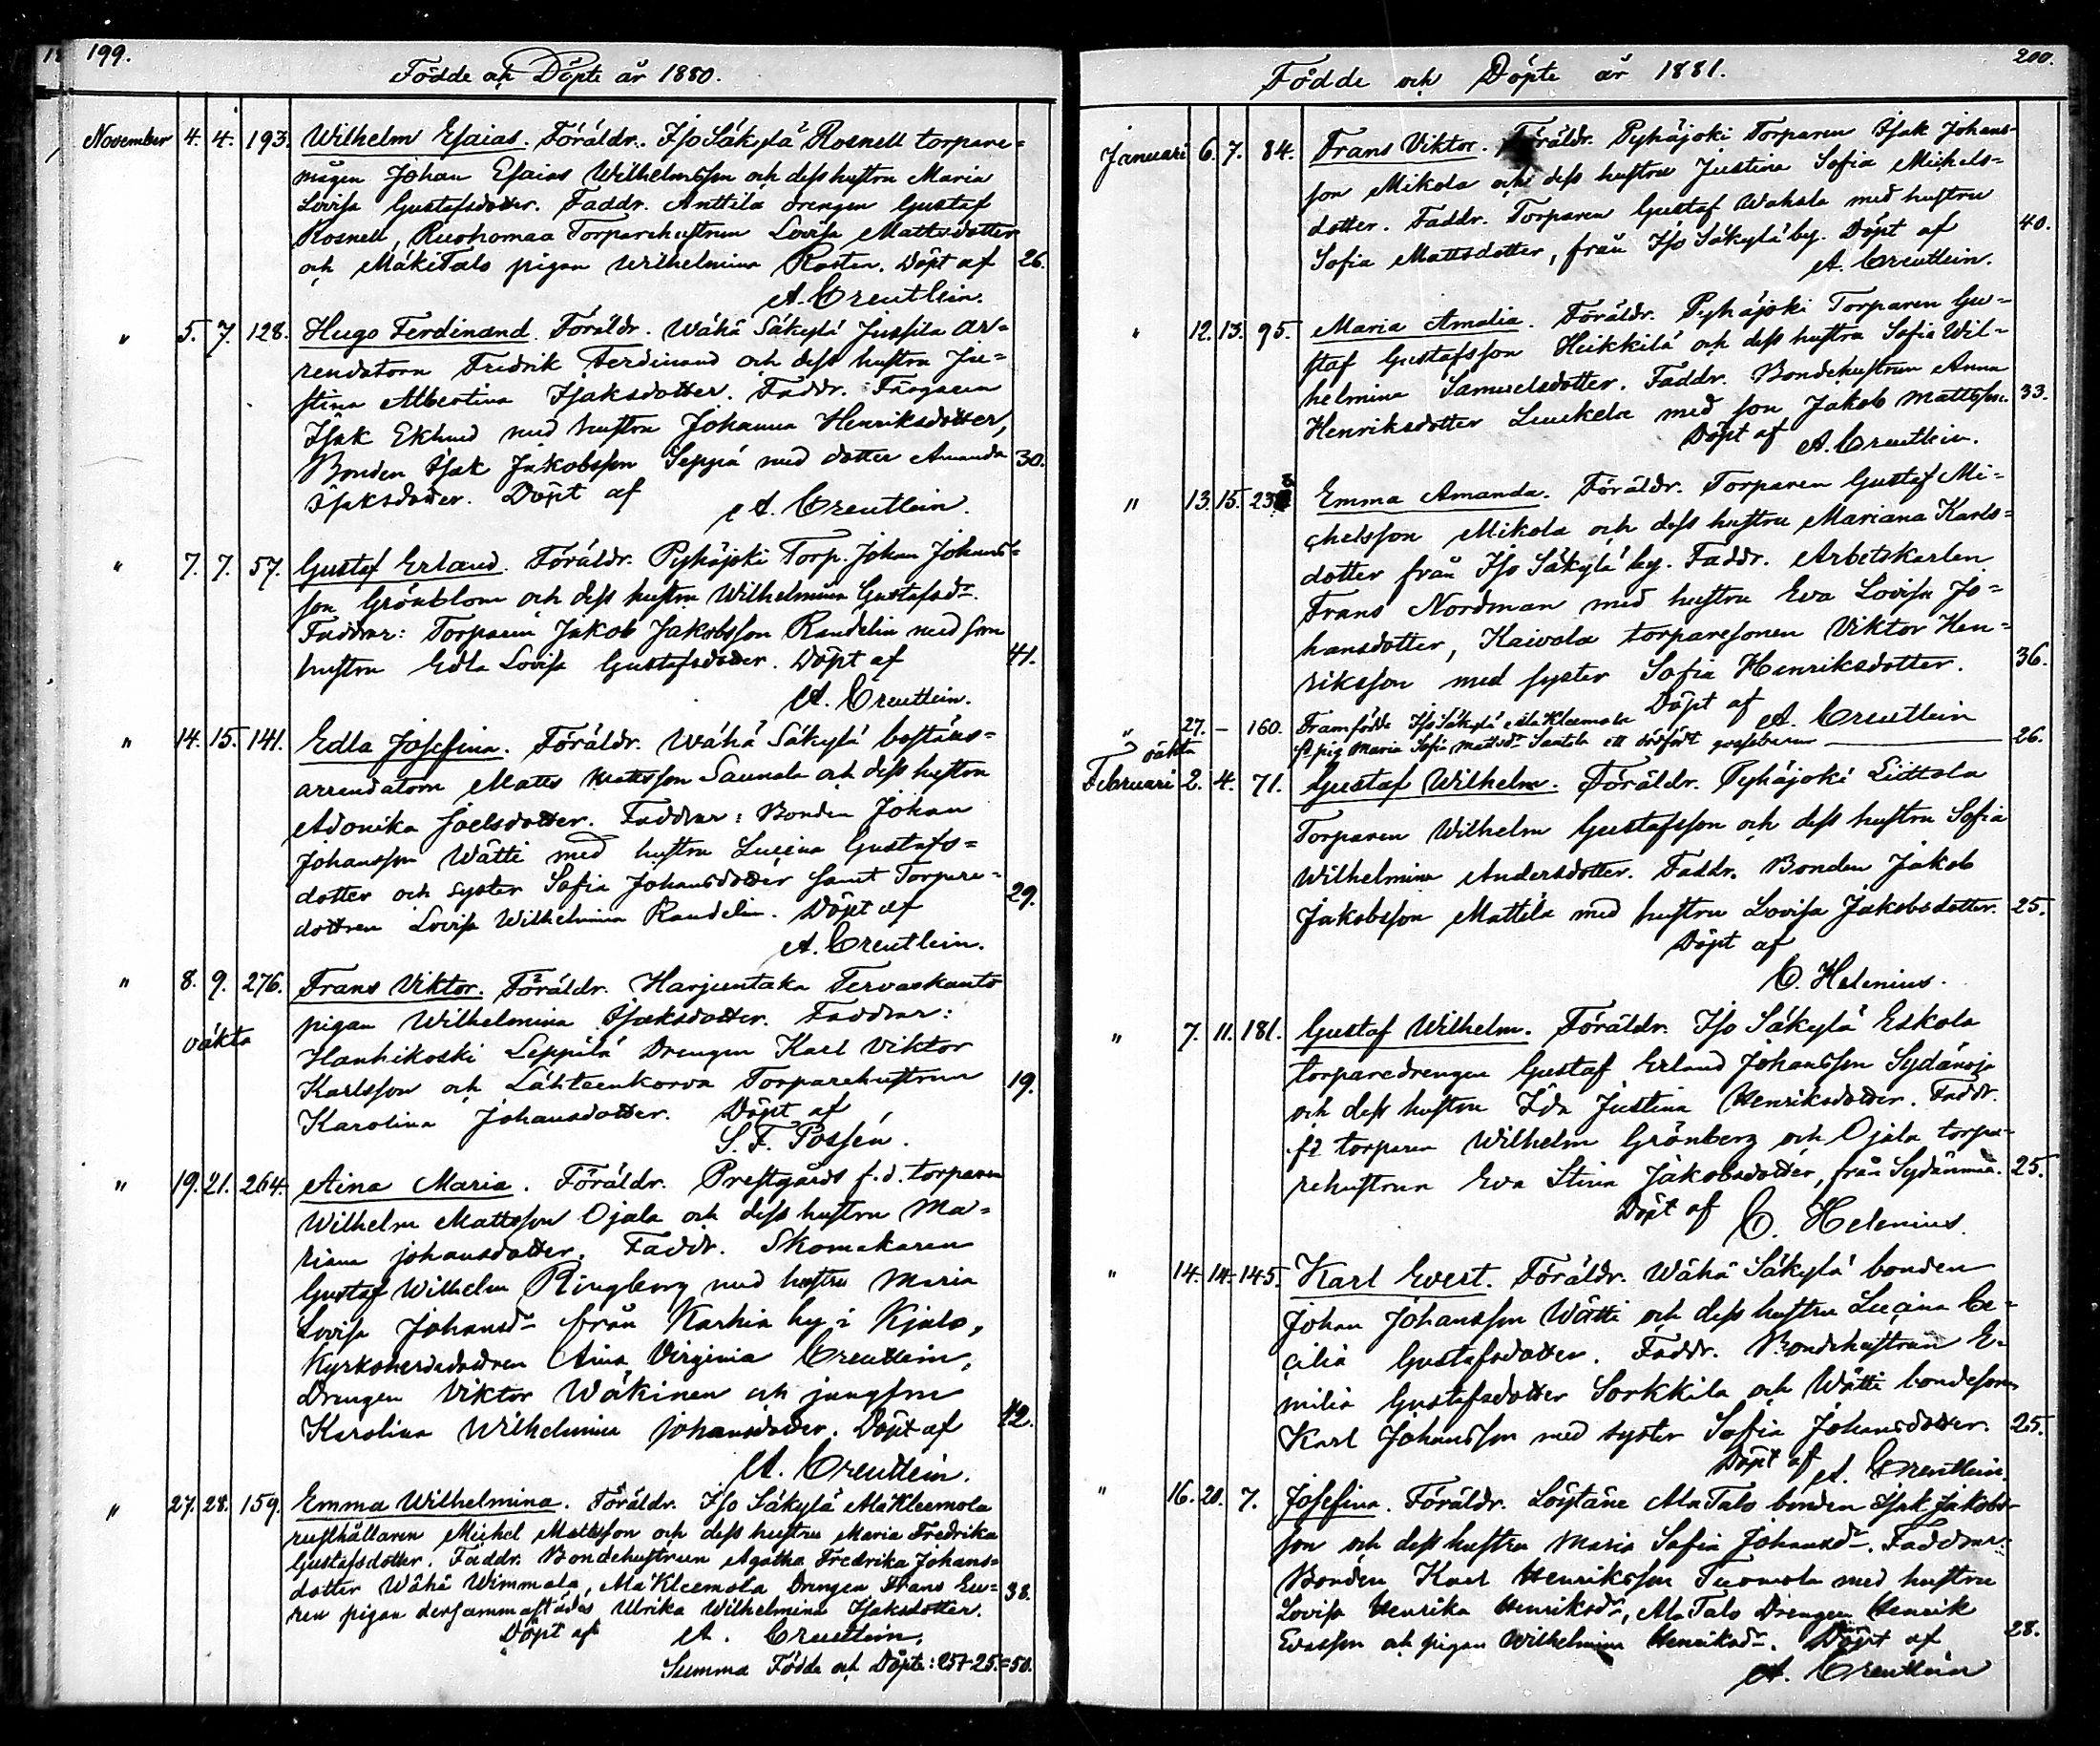 199.
Födde och Döpte år 1880.
November 4. 4. 193. Wilhelm Esaias. Föräldr. Iso Säkylä Rosnell torpare=
mågen Johan Esaias Wilhelmsson och dess hustru Maria
Lovisa Gustafsdotter. Faddr. Anttila drengen Gustaf
Rosnell, Ruohomaa Torparehustrun Lovisa Mattsdotter
och Mäkitalo pigan Wilhelmina Rosten. Döpt af 26.
A. Creutlein.
" 5. 7. 128. Hugo Ferdinand. Föräldr. Wähä Säkylä Jussila ar=
rendatorn Fredrik Ferdinand och dess hustru Ju=
stina Albertina Isaksdotter. Faddr. Färgaren
Isak Eklund med hustru Johanna Henriksdotter,
Bonden Isak Jakobsson Seppä med dotter Amanda 30.
Isaksdotter. Döpt af
A. Creutlein.
" 7. 7. 57. Gustaf Erland. Föräldr. Pyhäjoki Torp. Johan Johans=
son Grönblom och dess hustru Wilhelmina Gustafsdr.
Faddrar: Torparen Jakob Jakobsson Randelin med
hustru Edla Lovisa Gustafsdotter. Döpt af 41.
A. Creutlein.
" 14. 15. 141. Edla Josefina. Föräldr. Wähä Säkylä boställs=
arrendatorn Matts Mattsson Saunala och dess hustru
Adonika Joelsdotter. Faddrar: Bonden Johan
Johansson Wätti med hustru Lucina Gustafs=
dotter och syster Sofia Johansdotter samt Torpare=
dottren Lovisa Wilhelmina Randelin. Döpt af 29.
A. Creutlein.
" 8. 9. 276. Frans Viktor. Föräldr. Harjuntaka Tervaskanto
oäkta
pigan Wilhelmina Isaksdotter. Faddrar:
Hanhikoski Leppilä Drengen Karl Viktor
Karlsson och Lähteenkorva Torparehustrun 19.
Karolina Johansdotter. Döpt af
S. F. Possén.
" 19. 21. 264. Aina Maria. Föräldr. Prestgårds f.d. torparen
Wilhelm Mattsson Ojala och dess hustru Ma=
riana Johansdotter. Faddr. Skomakaren
Gustaf Wilhelm Ringberg med hustru Maria
Lovisa Johansdr från Karhia by i Kjulo,
Kyrkoherdedottren Aina Virginia Creutlein,
Drengen Viktor Wäkinen och jungfru
Karolina Wilhelmina Johansdotter. Döpt af 42.
A. Creutlein.
" 27. 28. 159. Emma Wilhelmina. Föräldr. Iso Säkylä Ala Kleemola
rusthållaren Michel Mattsson och dess hustru Maria Fredrika
Gustafsdotter. Faddr. Bondehustrun Agatha Fredrika Johans=
dotter Wähä Wimmala, Ala Kleemola Drengen Frans
pigan dersammastädes Ulrika Wilhelmina Isaksdotter. 38.
Döpt af A. Creutlein.
Summa Födde och Döpte: 25+25=50.
200.
Födde och Döpte år 1881.
Januari 6. 7. 84. Frans Viktor. Föräldr. Pyhäjoki Torparen Isak Johans=
son Mikola och dess hustru Justina Sofia Michels=
dotter. Faddr. Torparen Gustaf Wahala med hustru 40.
Sofia Mattsdotter, från Iso Säkylä by. Döpt af
A. Creutlein.
" 12. 13. 95. Maria Amalia. Föräldr. Pyhäjoki Torparen Gu=
staf Gustafsson Heikkilä och dess hustru Sofia Wil=
helmina Samuelsdotter. Faddr. Bondehustrun Anna
Henriksdotter Luukela med son Jakob Mattsson. 33.
Döpt af A. Creutlein.
" 13. 15. 238 Emma Amanda. Föräldr. Torparen Gustaf Mi=
chelsson Mikola och dess hustru Mariana Karls=
dotter från Iso Säkylä by. Faddr. Arbetskarlen
Frans Nordman med hustru Eva Lovisa Jo=
hansdotter, Kaivola torparesonen Viktor Hen=
riksson med syster Sofia Henriksdotter. 36.
Döpt af A. Creutlein
" 27. – 160. Framfödde Iso Säkylä Ala Kleemola
oäkta
pig Maria Sofia Mattsdr Santala ett dödfödt gossebarn 26.
Februari 2. 4. 71. Gustaf Wilhelm. Föräldr. Pyhäjoki Lidttola
Torparen Wilhelm Gustafsson och dess hustru Sofia
Wilhelmina Andersdotter. Faddr. Bonden Jakob
Jakobsson Mattila med hustru Lovisa Jakobsdotter. 25.
Döpt af
C. Helenius.
" 7. 11. 181. Gustaf Wilhelm. Föräldr. Iso Säkylä Eskola
torparedrengen Gustaf Erland Johansson Sydänoja
och dess hustru Ida Justina Henriksdotter. Faddr.
fd torparen Wilhelm Grönberg och Ojala torpa=
rehustrun Eva Stina Jakobsdotter, från Sydänmaa. 25.
Döpt af C. Helenius.
" 14. 14. 145. Karl Evert. Föräldr. Wähä Säkylä bonden
Johan Johansson Wätti och dess hustru Lucina Ce=
cilia Gustafsdotter. Faddr. Bondehustrun E=
milia Gustafsdotter Sorkkila och Wätti bondesonen
Karl Johansson med syster Sofia Johansdotter. 25.
Döpt af A. Creutlein.
" 16. 20. 7. Josefina. Föräldr. Löytäne Ala Talo bonden Isak Jakobs=
son och dess hustru Maria Sofia Johansdr. Faddrar:
Bonden Karl Henriksson Tuomola med hustru
Lovisa Henrika Henriksdr, Ala Talo Drengen Henrik
Evasson och pigan Wilhelmina Henriksdr. Döpt af 28.
A. Creutlein